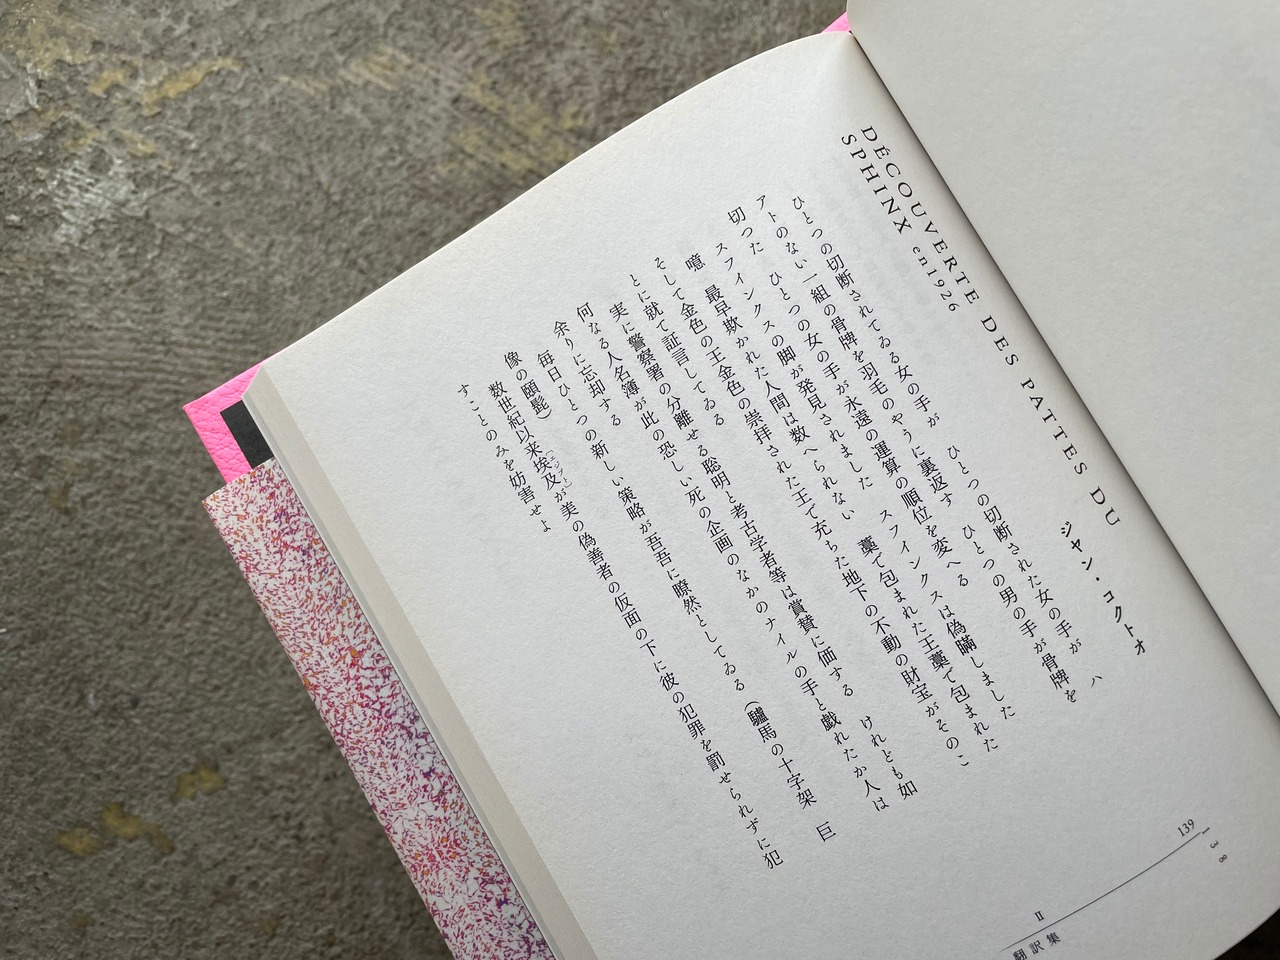 DÉCOUVERTE DES PATTES DU
SPHINX en 1926
ジャン・コクトオ
ひとつの切断されてゐる女の手が　ひとつの切断された女の手が　ハ
アトのない一組の骨牌を羽毛のやうに裏返す　ひとつの男の手が骨牌を
切つた　ひとつの女の手が永遠の運算の順位を変へる
スフインクスの脚が発見されました　スフインクスは偽瞞しました
噫　最早欺かれた人間は数へられない　藁で包まれた王藁で包まれた
そして金色の王金色の崇拝された王で充ちた地下の不動の財宝がそのこ
とに就て証言してゐる
実に警察署の分離せる聡明と考古学者等は賞賛に価する　けれども如
何なる人名簿が此の恐しい死の企画のなかのナイルの手と戯れたか人は
余りに忘却する
毎日ひとつの新しい策略が吾吾に瞭然としてゐる（驢馬の十字架　巨
像の頤髭）
数世紀以来埃及（エジプト）が美の偽善者の仮面の下に彼の犯罪を罰せられずに犯
すことのみを妨害せよ
138
139
Ⅱ
翻訳集